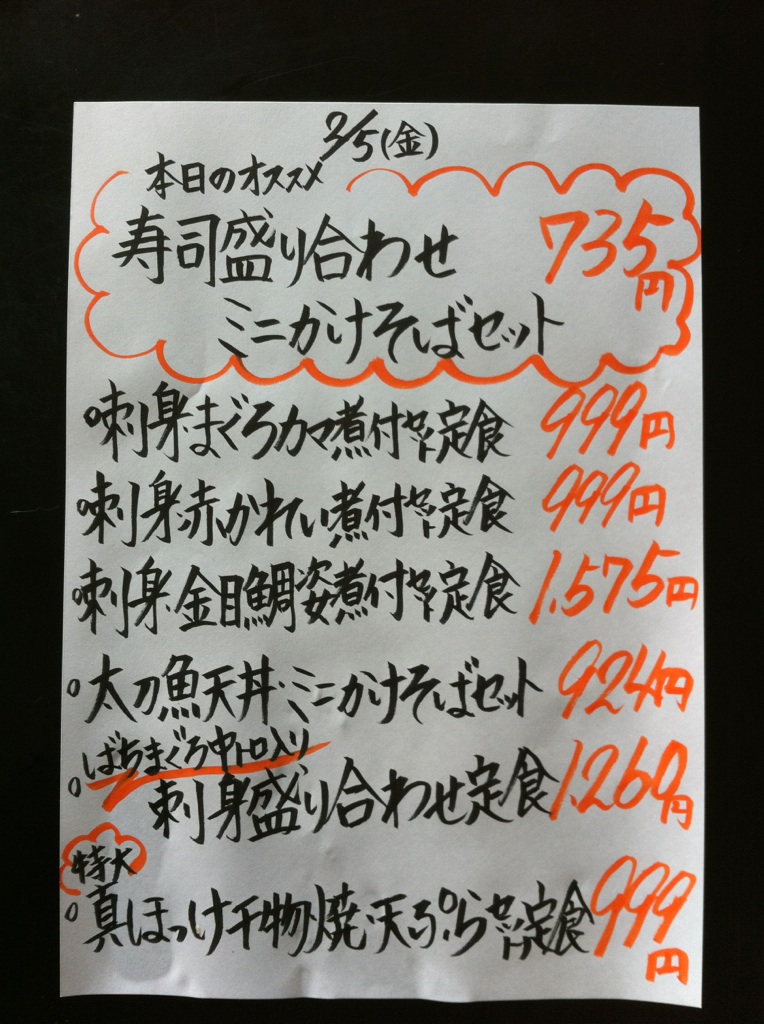 2/5(金)
本日のオススメ
寿司盛り合わせ 735円
ミニかけそばセット
○刺身・まぐろカマ煮付セット定食 999円
○刺身・赤かれい煮付セット定食 999円
○刺身・金目鯛姿煮付セット定食 1.575円
○太刀魚天丼・ミニかけそばセット 924円
ばちまぐろ中トロ入り
○刺身盛り合わせ定食 1.260円
特大
○真ほっけ干物焼・天ぷらセット定食 999円